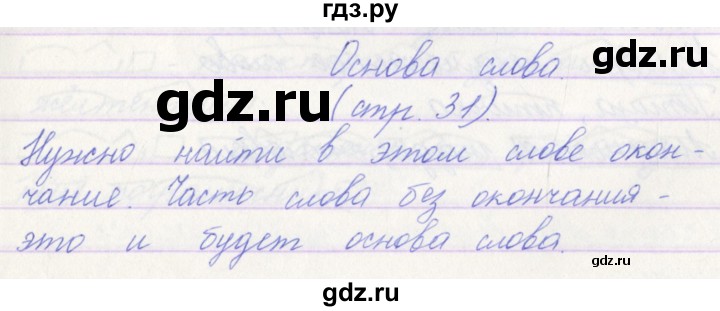 гдз.ру
Основа слова.
gdz.ru (стр. 31).
Нужно найти в этом слове окон-
чание. Часть слова без окончания-
это и будет основа слова.
gdz.ru
gdz.ru